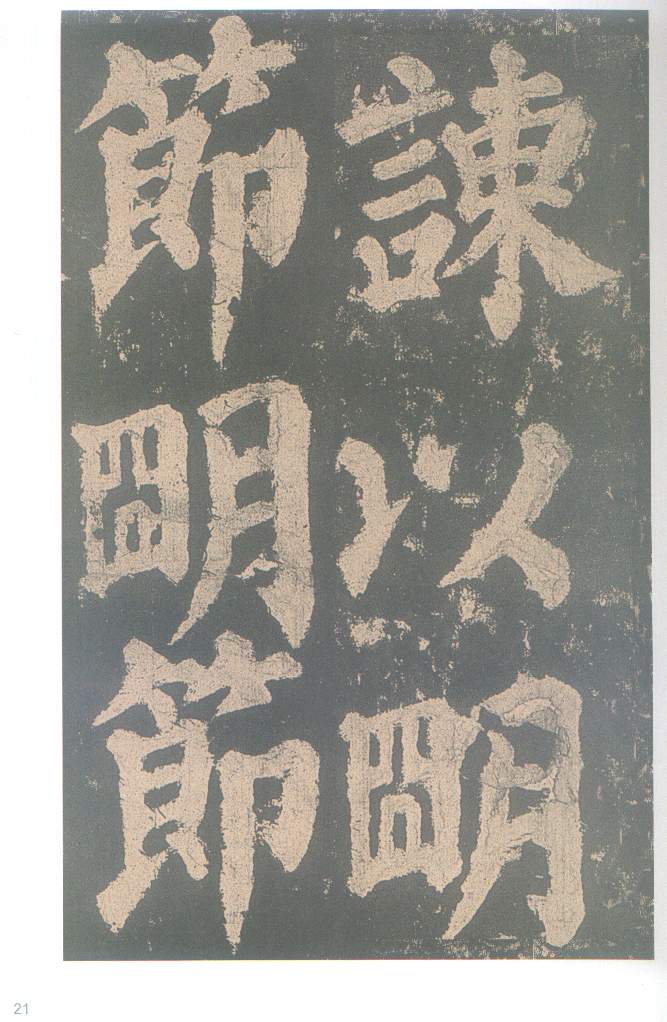 諫以明
節明節
21